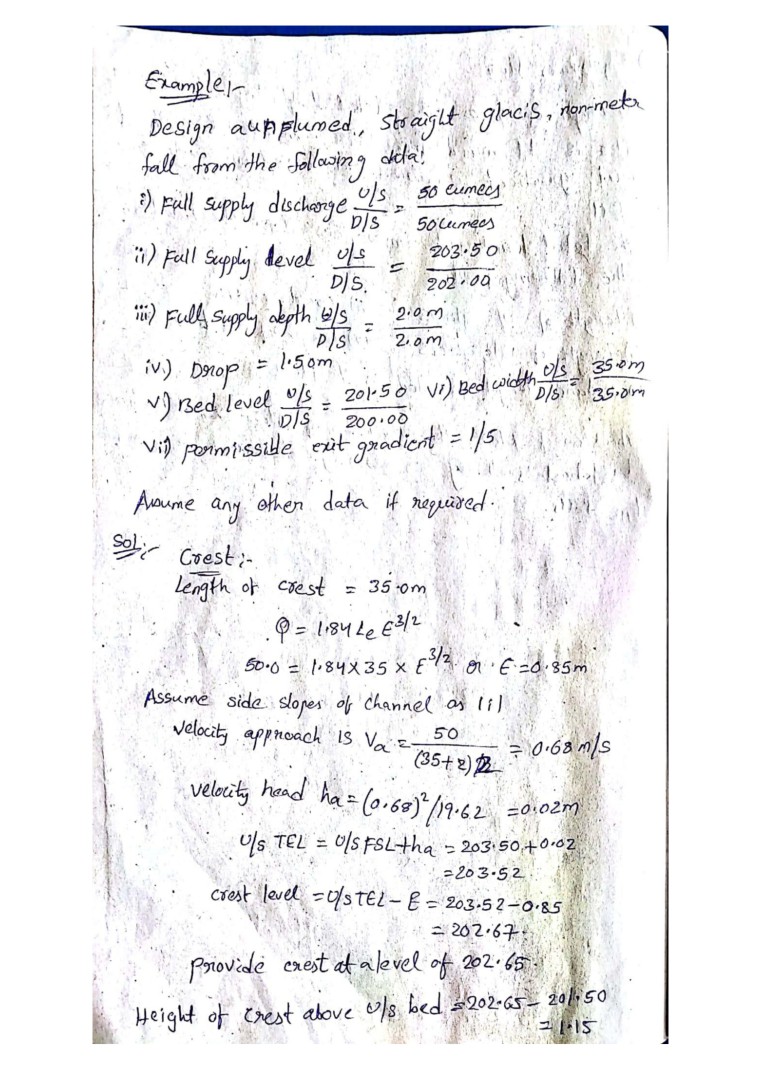 Example:-
Design aunflumed, straight glacis, non-meter
fall from the following data:
i) Full supply discharge U/S / D/S = 50 cumecs / 50 cumecs
ii) Full supply level U/S / D/S = 203.50 / 202.00
iii) Full supply depth U/S / D/S = 2.0 m / 2.0 m
iv) Drop = 1.50m
v) Bed level U/S / D/S = 201.50 / 200.00 vi) Bed width U/S / D/S = 35.0m / 35.0m
vii) permissible exit gradient = 1/5
Assume any other data if required.
Sol:- Crest:-
Length of crest = 35.0m
Q = 1.84 Le E^3/2
50.0 = 1.84 x 35 x E^3/2 or E = 0.85m
Assume side slopes of channel as 1:1
Velocity approach is Va = 50 / (35+2)2 = 0.68 m/s
velocity head ha = (0.68)²/19.62 = 0.02m
U/S TEL = U/S FSL + ha = 203.50 + 0.02
= 203.52
crest level = U/S TEL - E = 203.52 - 0.85
= 202.67.
provide crest at a level of 202.65.
Height of crest above U/S bed = 202.65 - 201.50
= 1.15